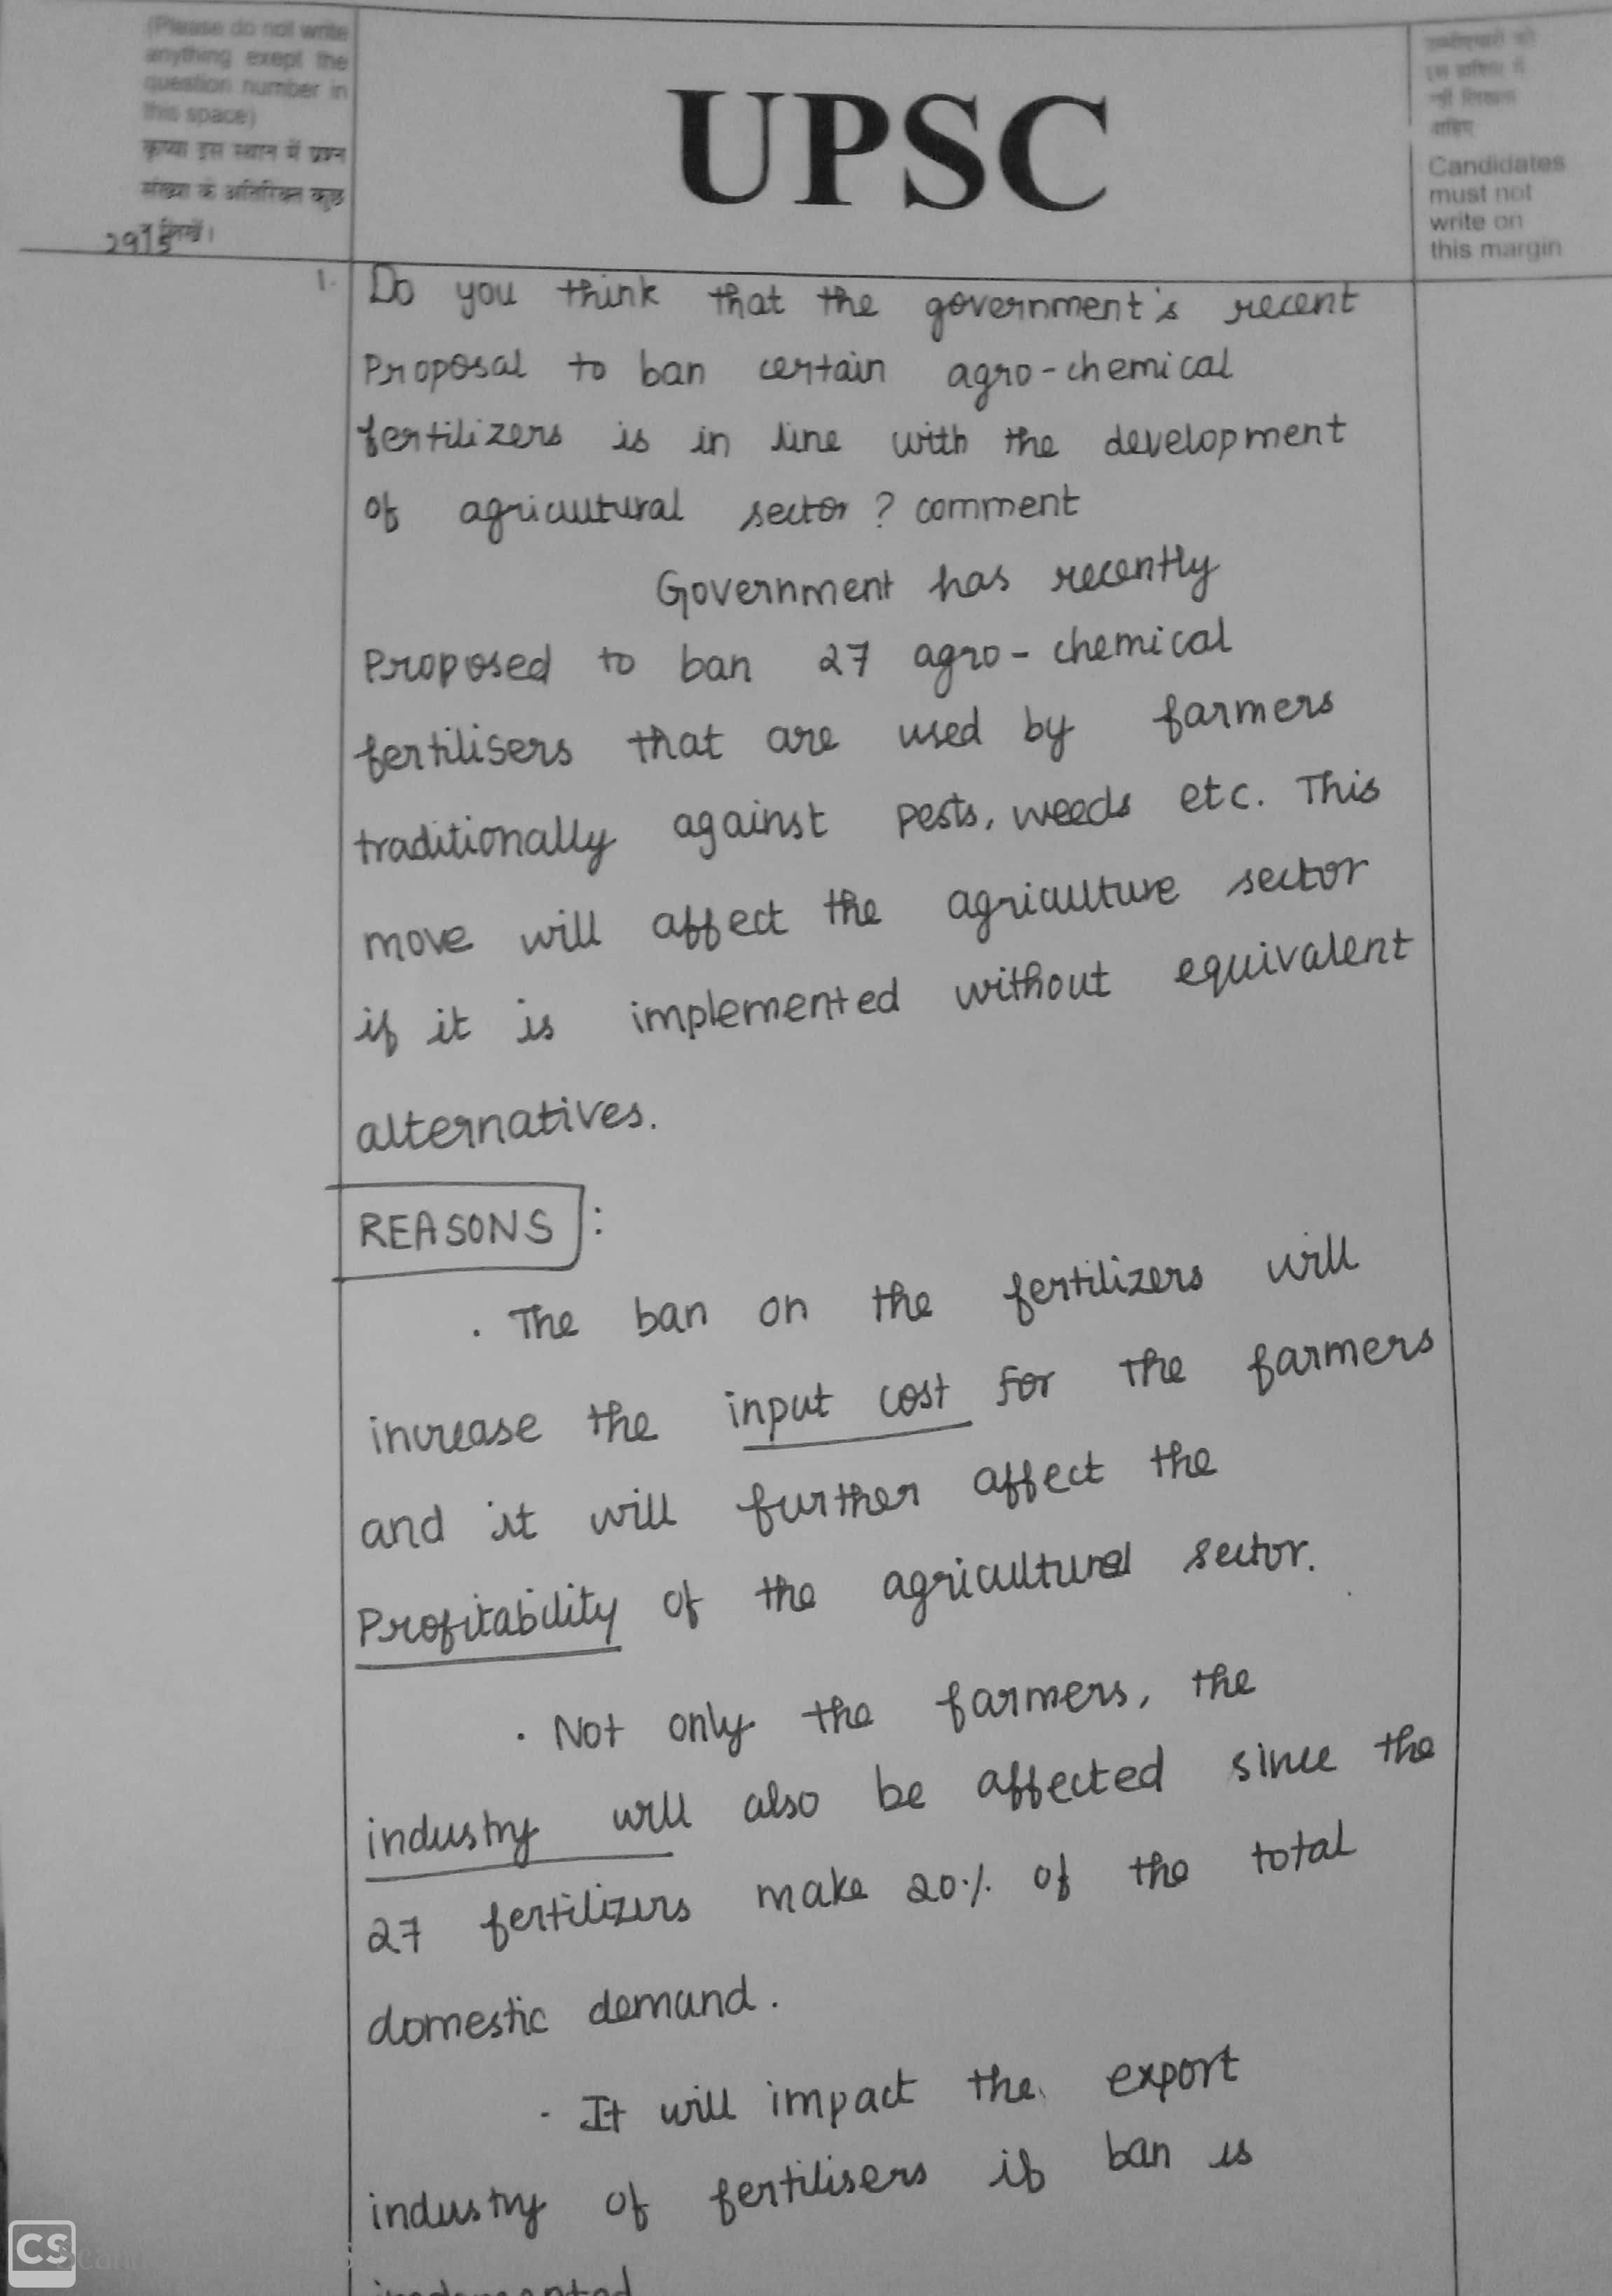 (Please do not write
anything exept the
question number in
this space)
कृप्या इस स्थान में प्रश्न
संख्या के अतिरिक्त कुछ
न लिखें।
UPSC
उम्मीदवारों को
इस हाशिए में
नहीं लिखना
चाहिए
Candidates
must not
write on
this margin
1. Do you think that the government's recent
Proposal to ban certain agro-chemical
fertilizers is in line with the development
of agricultural sector? comment
Government has recently
Proposed to ban 27 agro-chemical
fertilisers that are used by farmers
traditionally against pests, weeds etc. This
move will affect the agriculture sector
if it is implemented without equivalent
alternatives.
REASONS :
. The ban on the fertilizers will
increase the input cost for the farmers
and it will further affect the
Profitability of the agricultural sector.
. Not only the farmers, the
industry will also be affected since the
27 fertilizers make 20% of the total
domestic demand.
. It will impact the export
industry of fertilisers if ban is
CS